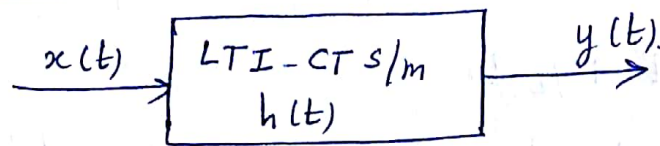 x(t)
LTI-CT S/m
h(t)
y(t).